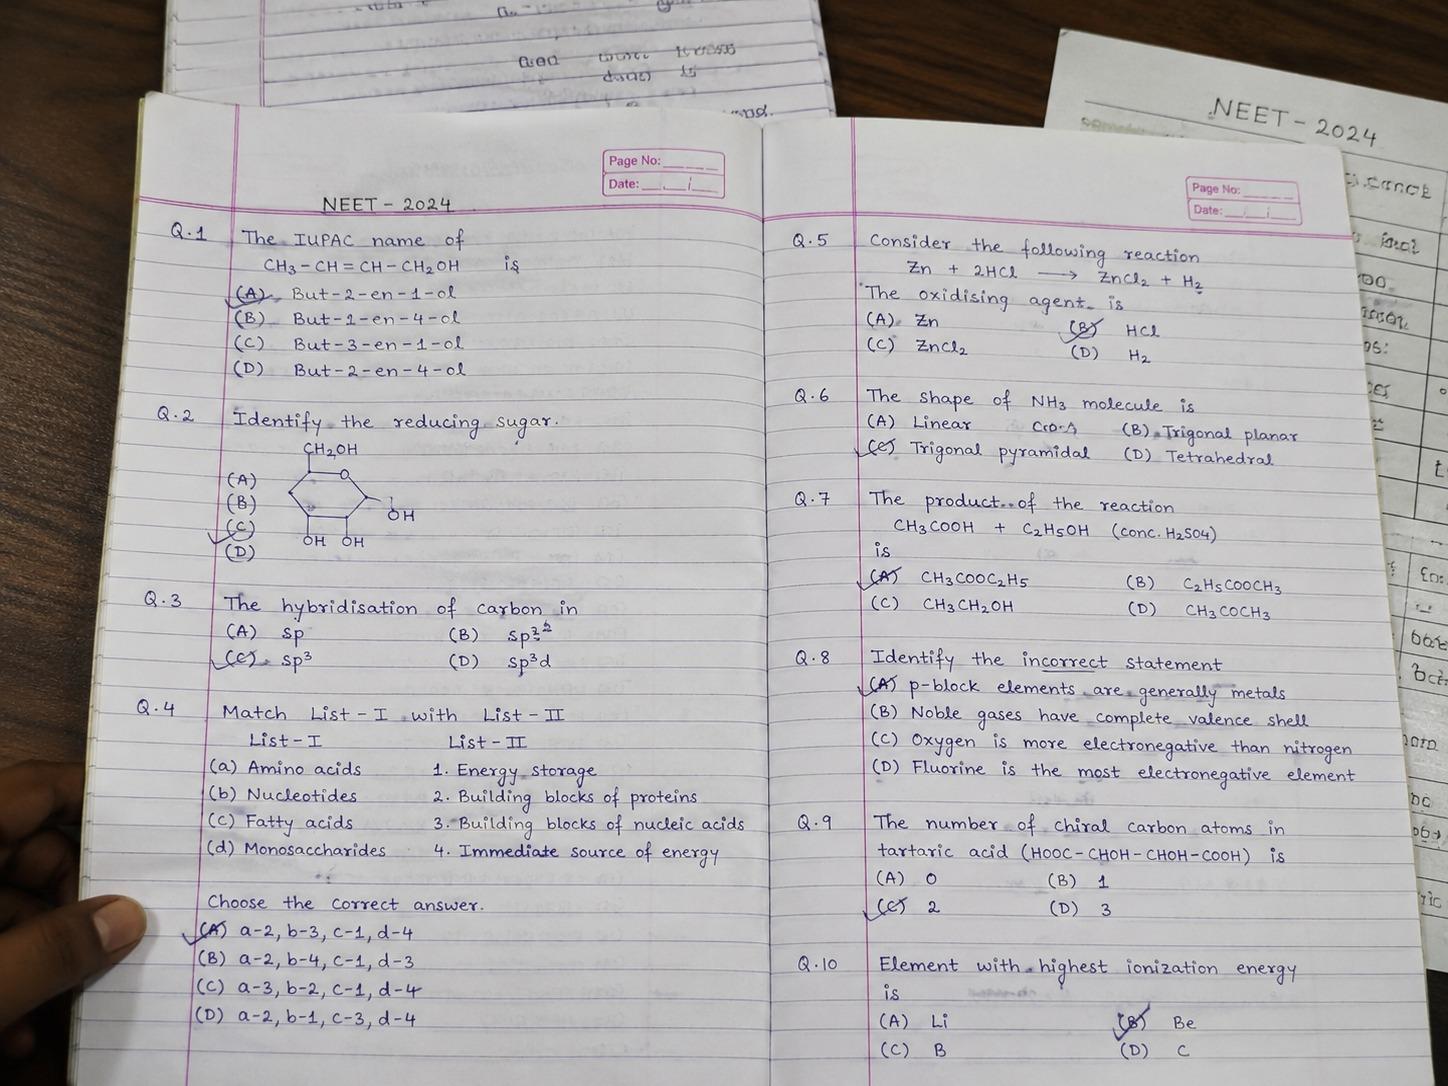 NEET - 2024
Page No:
Date:
NEET - 2024
Q.1 The IUPAC name of
CH3 - CH = CH - CH2OH is
(A) But-2-en-1-ol
(B) But-1-en-4-ol
(C) But-3-en-1-ol
(D) But-2-en-4-ol
Q.2 Identify the reducing sugar.
CH2OH
O
(A)
(B)
OH
(C)
OH OH
(D)
Q.3 The hybridisation of carbon in
(A) sp (B) sp2
(C) sp3 (D) sp3d
Q.4 Match List - I with List - II
List - I List - II
(a) Amino acids 1. Energy storage
(b) Nucleotides 2. Building blocks of proteins
(c) Fatty acids 3. Building blocks of nucleic acids
(d) Monosaccharides 4. Immediate source of energy
Choose the correct answer.
(A) a-2, b-3, c-1, d-4
(B) a-2, b-4, c-1, d-3
(C) a-3, b-2, c-1, d-4
(D) a-2, b-1, c-3, d-4
Page No:
Date:
Q.5 Consider the following reaction
Zn + 2HCl → ZnCl2 + H2
The oxidising agent is
(A) Zn (B) HCl
(C) ZnCl2 (D) H2
Q.6 The shape of NH3 molecule is
(A) Linear (B) Trigonal planar
(C) Trigonal pyramidal (D) Tetrahedral
Q.7 The product of the reaction
CH3COOH + C2H5OH (conc. H2SO4)
is
(A) CH3COOC2H5 (B) C2H5COOCH3
(C) CH3CH2OH (D) CH3COCH3
Q.8 Identify the incorrect statement
(A) p-block elements are generally metals
(B) Noble gases have complete valence shell
(C) Oxygen is more electronegative than nitrogen
(D) Fluorine is the most electronegative element
Q.9 The number of chiral carbon atoms in
tartaric acid (HOOC-CHOH-CHOH-COOH) is
(A) 0 (B) 1
(C) 2 (D) 3
Q.10 Element with highest ionization energy
is
(A) Li (B) Be
(C) B (D) C